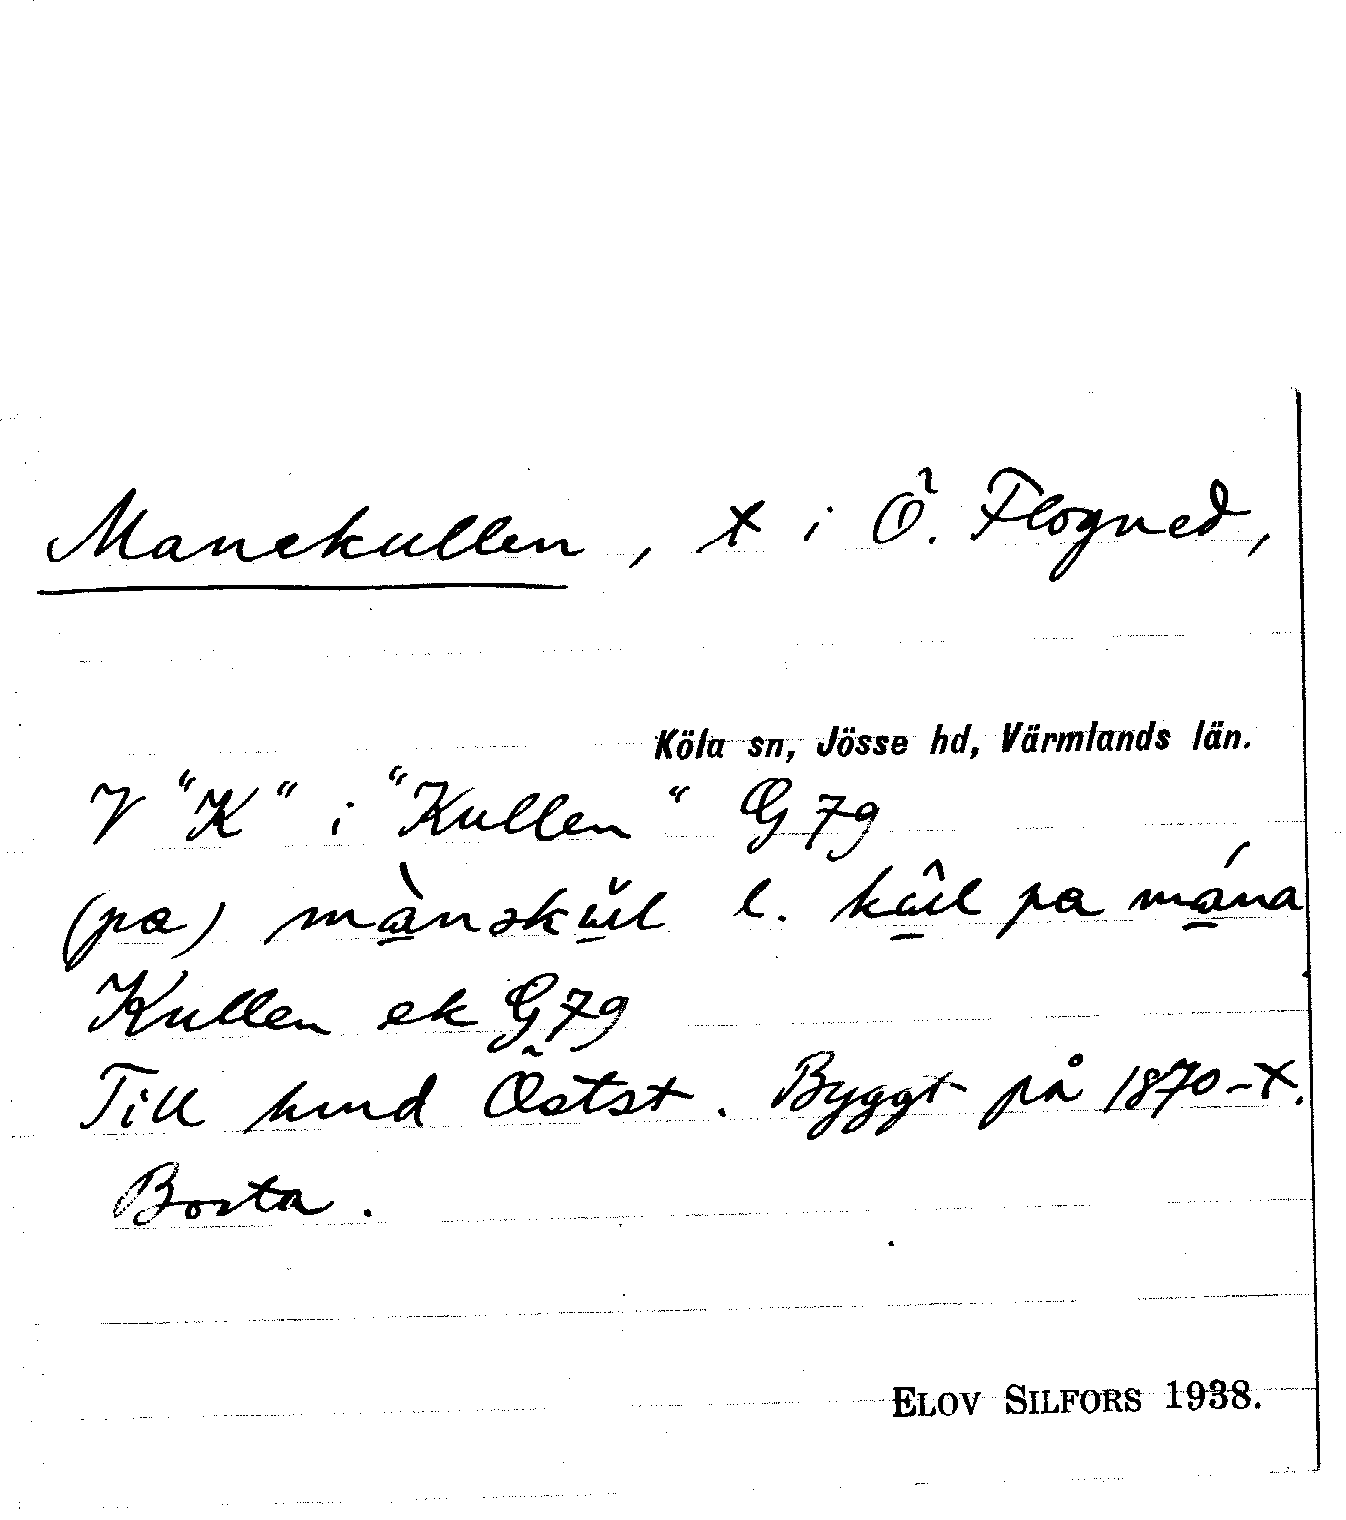 Manekullen, x i Ö. Flogned,
Köla sn, Jösse hd, Värmlands län.
V "K" i "Kullen" G 79
(pa) mànskŭl l. kûl pa mána
Kullen ek G79
Till hmd Östst. Byggt på 1870-t.
Borta.
ELOV SILFORS 1938.